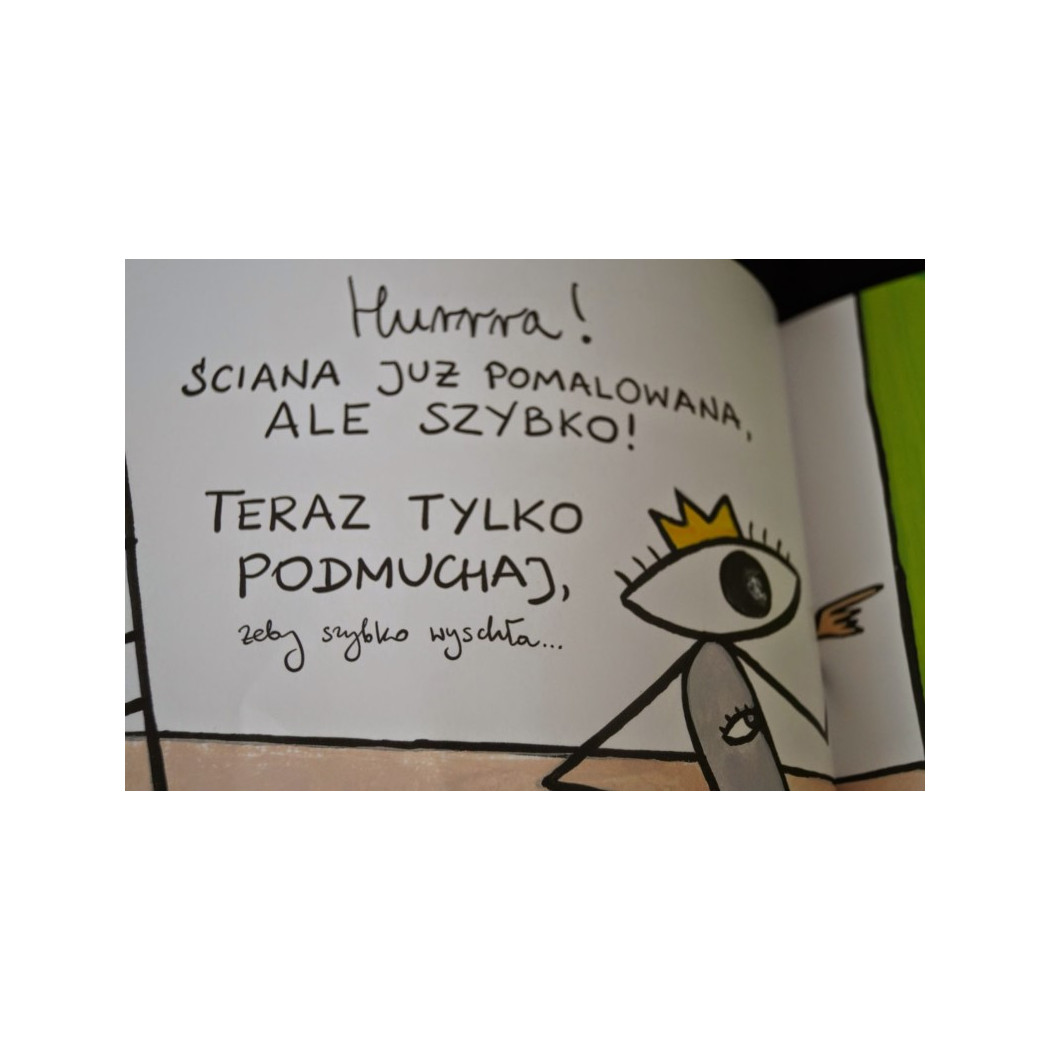 Hurrrra!
ŚCIANA JUŻ POMALOWANA,
ALE SZYBKO!
TERAZ TYLKO
PODMUCHAJ,
żeby szybko wyschła...